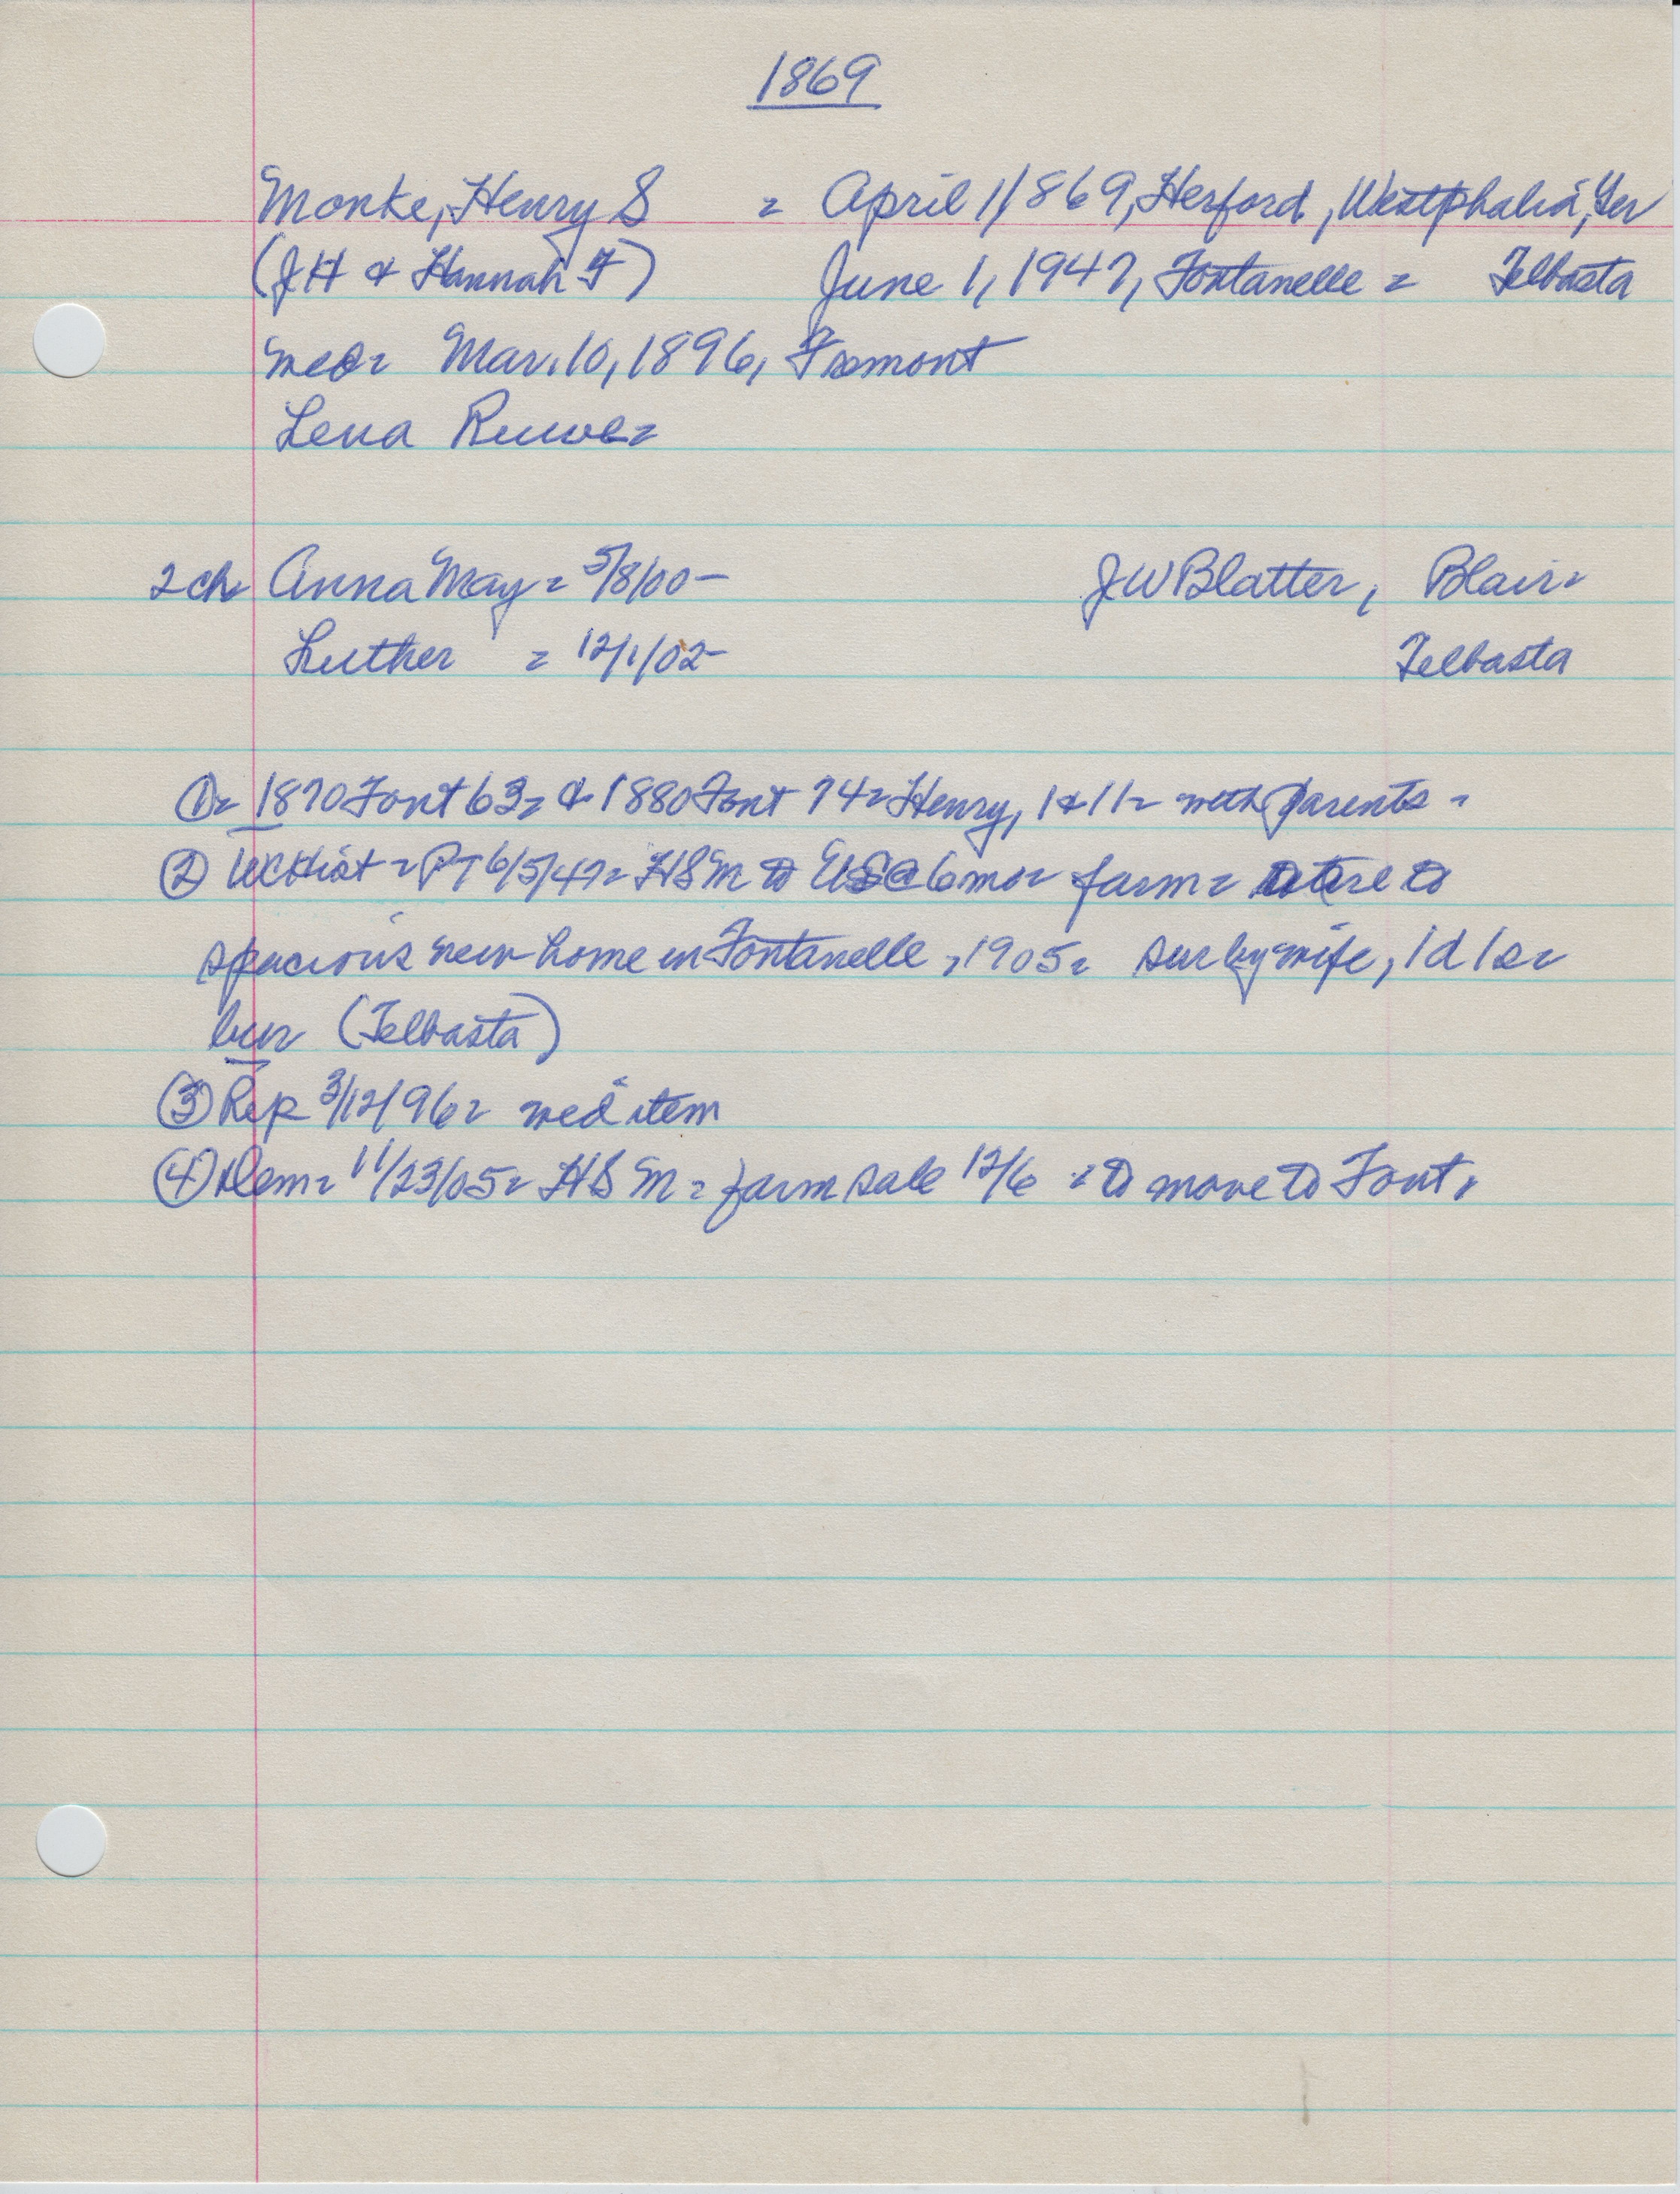 1869
Monke, Henry S = April 1, 1869, Herford, Westphalia, Ger
(JH & Hannah F) June 1, 1947, Fontanelle = Telbasta
wed= Mar. 10, 1896, Fremont
Lena Ruwe=
2 ch Anna May = 5/8/00- J W Blatter, Blair=
Luther = 12/1/02- Telbasta
①= 1870 Font 63= & 1880 Font 74= Henry, 1 & 11= with parents -
② WC Hist = PT 6/5/47= HSM to US @ 6 mo= farm= retire to
spacious new home in Fontanelle, 1905= sur by wife, 1d 1s=
bur (Telbasta)
③ Rep 3/12/96= wed item
④ Dem= 11/23/05= HSM = farm sale 12/6 = to move to Font.